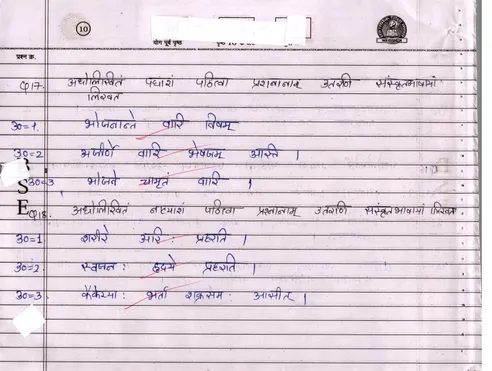 10
योग पूर्व पृष्ठ
प्रश्न क्र.
Q17. अधोलिखितं पद्यांशं पठित्वा प्रश्नानाम् उतराणि संस्कृतभाषायां
लिखत
उ०=1. भोजनान्ते वारि विषम्
उ०=2 अजीर्णे वारि भेषजम् अस्ति ।
उ०=3 भोजने चामृतं वारि ।
S
E
Q18. अधोलिखितं नाट्यांशं पठित्वा प्रश्नानाम् उतराणि संस्कृतभाषायां लिखत
उ०=1 शरीरे अरि: प्रहरति ।
उ०=2. स्वजन: हृदये प्रहरति ।
उ०=3. कैकेय्या: भर्ता शक्रसम: आसीत् ।